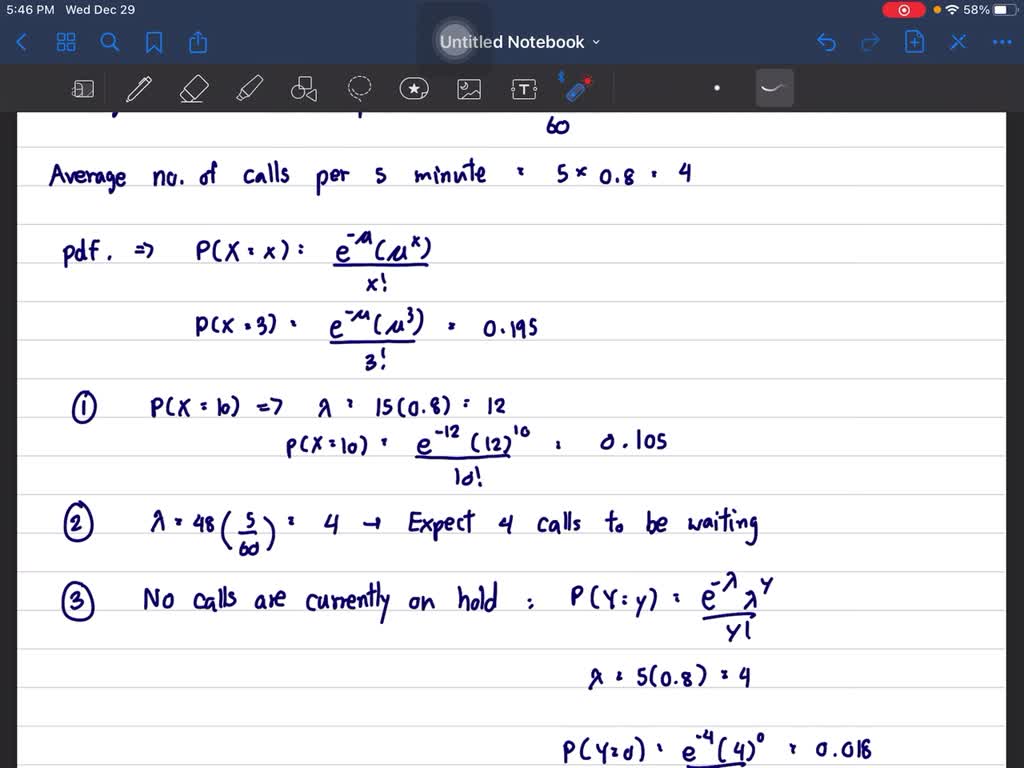 5:46 PM Wed Dec 29 58%
Untitled Notebook
60
Average no. of calls per 5 minute = 5 × 0.8 = 4
pdf. => P(X = x) = e^-μ (μ^x) / x!
P(X = 3) = e^-μ (μ^3) / 3! = 0.195
① P(X = 10) => λ = 15(0.8) = 12
P(X = 10) = e^-12 (12)^10 / 10! = 0.105
② λ = 48 (5/60) = 4 → Expect 4 calls to be waiting
③ No calls are currently on hold : P(Y = y) = e^-λ λ^y / y!
λ = 5(0.8) = 4
P(Y=0) = e^-4 (4)^0 = 0.018